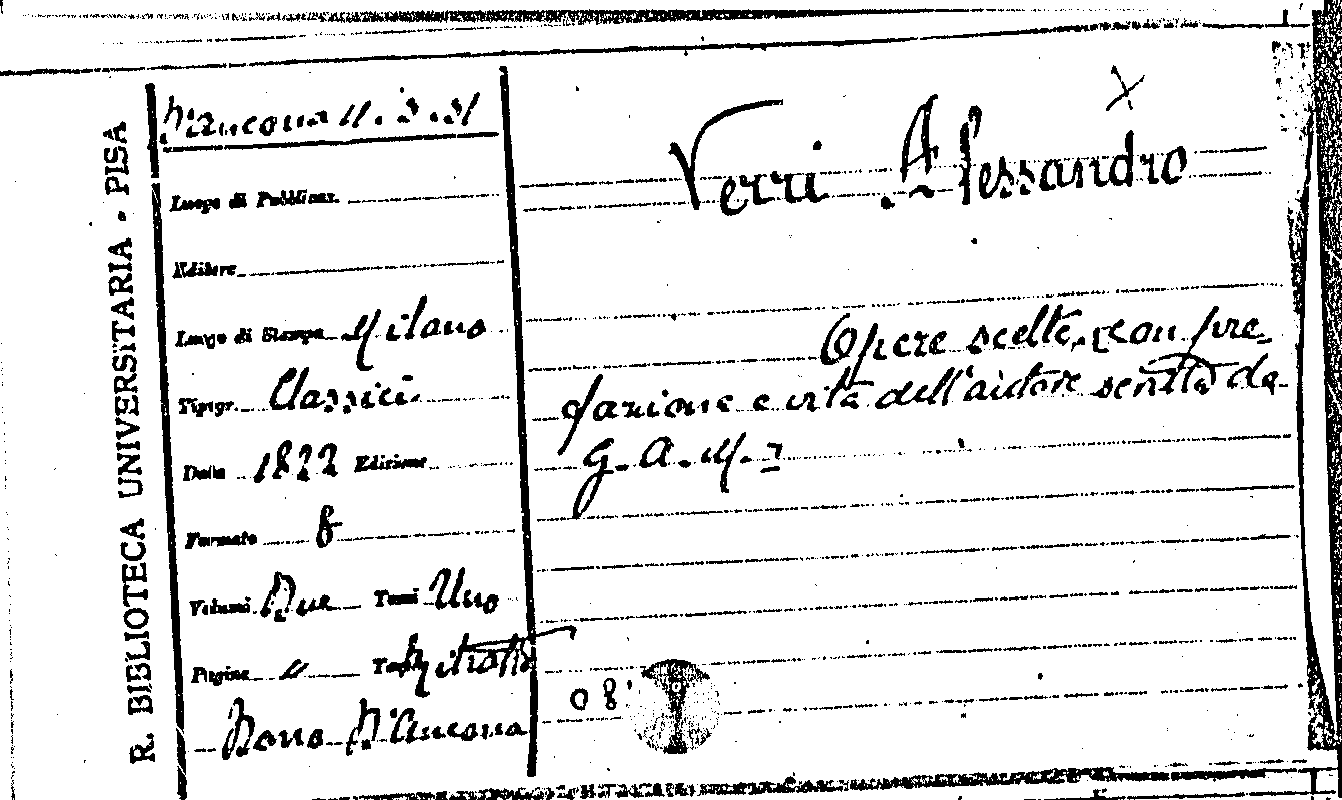 R. BIBLIOTECA UNIVERSITARIA - PISA
D'Ancona 11. 3. 31
Luogo di Pubblicaz.
Editore
Luogo di Stampa Milano
Tipogr. Classici
Data 1822 Edizione
Formato 8
Volumi Due Tomi Uno
Pagine " Ritratto
Dono D'Ancona
X
Verri Alessandro
Opere scelte, con pre-
fazione e vita dell'autore scritta da
G. A. M.
08